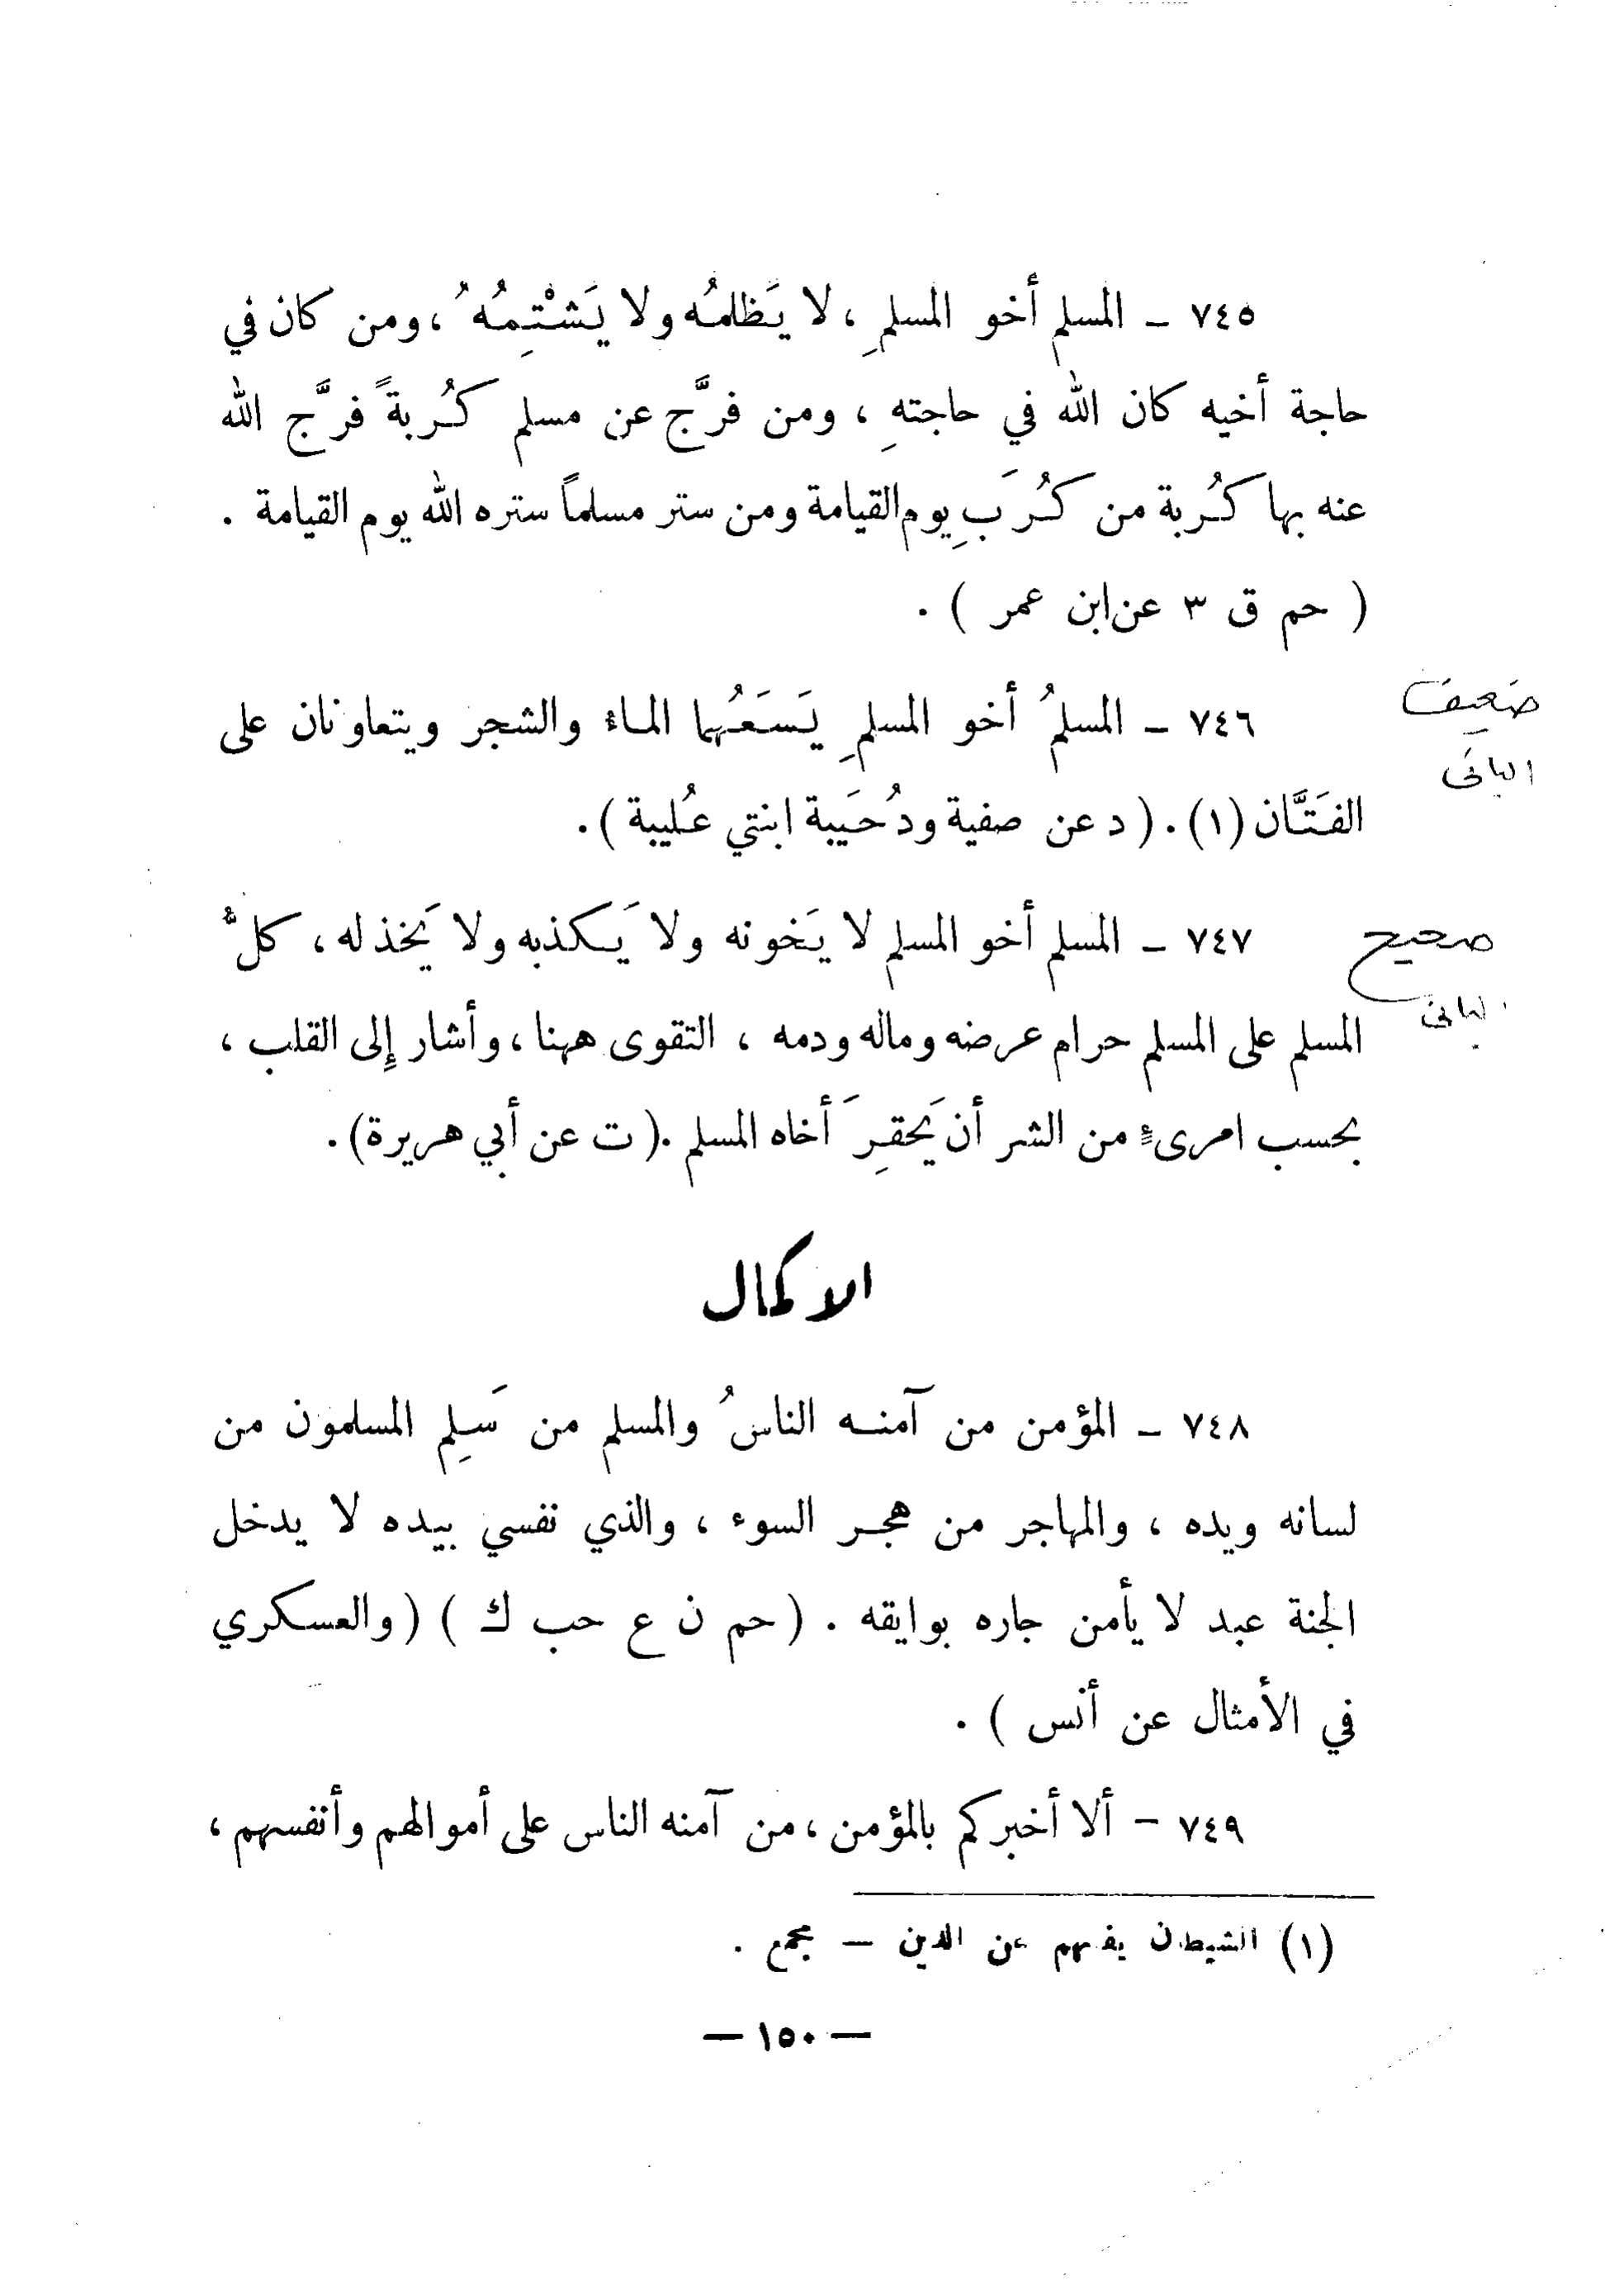 ٧٤٥ - المسلم أخو المسلمِ ، لا يَظلمُه ولا يَشْتِمُهُ ، ومن كان في
حاجة أخيه كان الله في حاجتهِ ، ومن فرَّج عن مسلم كُربةً فرَّج الله
عنه بها كُربة من كُرَبِ يوم القيامة ومن ستر مسلماً ستره الله يوم القيامة .
( حم ق ٣ عن ابن عمر ) .
٧٤٦ - المسلمُ أخو المسلمِ يَسَعُهما الماء والشجر ويتعاونان على
ضعيف
البانى
الفَتَّان (١) . ( د عن صفية ودُحَيبة ابنتي عُليبة ) .
٧٤٧ - المسلم أخو المسلم لا يَخونه ولا يَكذبه ولا يَخذله ، كلُّ
صحيح
البانى
المسلم على المسلم حرام عرضه وماله ودمه ، التقوى ههنا ، وأشار إلى القلب ،
بحسب امرىءٍ من الشر أن يَحقِرَ أخاه المسلم . ( ت عن أبي هريرة ) .
الاكمال
٧٤٨ - المؤمن من آمنه الناسُ والمسلم من سَلِم المسلمون من
لسانه ويده ، والمهاجر من هجر السوء ، والذي نفسي بيده لا يدخل
الجنة عبد لا يأمن جاره بوايقه . ( حم ن ع حب ك ) ( والعسكري
في الأمثال عن أنس ) .
٧٤٩ - ألا أخبركم بالمؤمن ، من آمنه الناس على أموالهم وأنفسهم ،
(١) الشيطان يفتنهم عن الدين - مجمع .
- ١٥٠ -